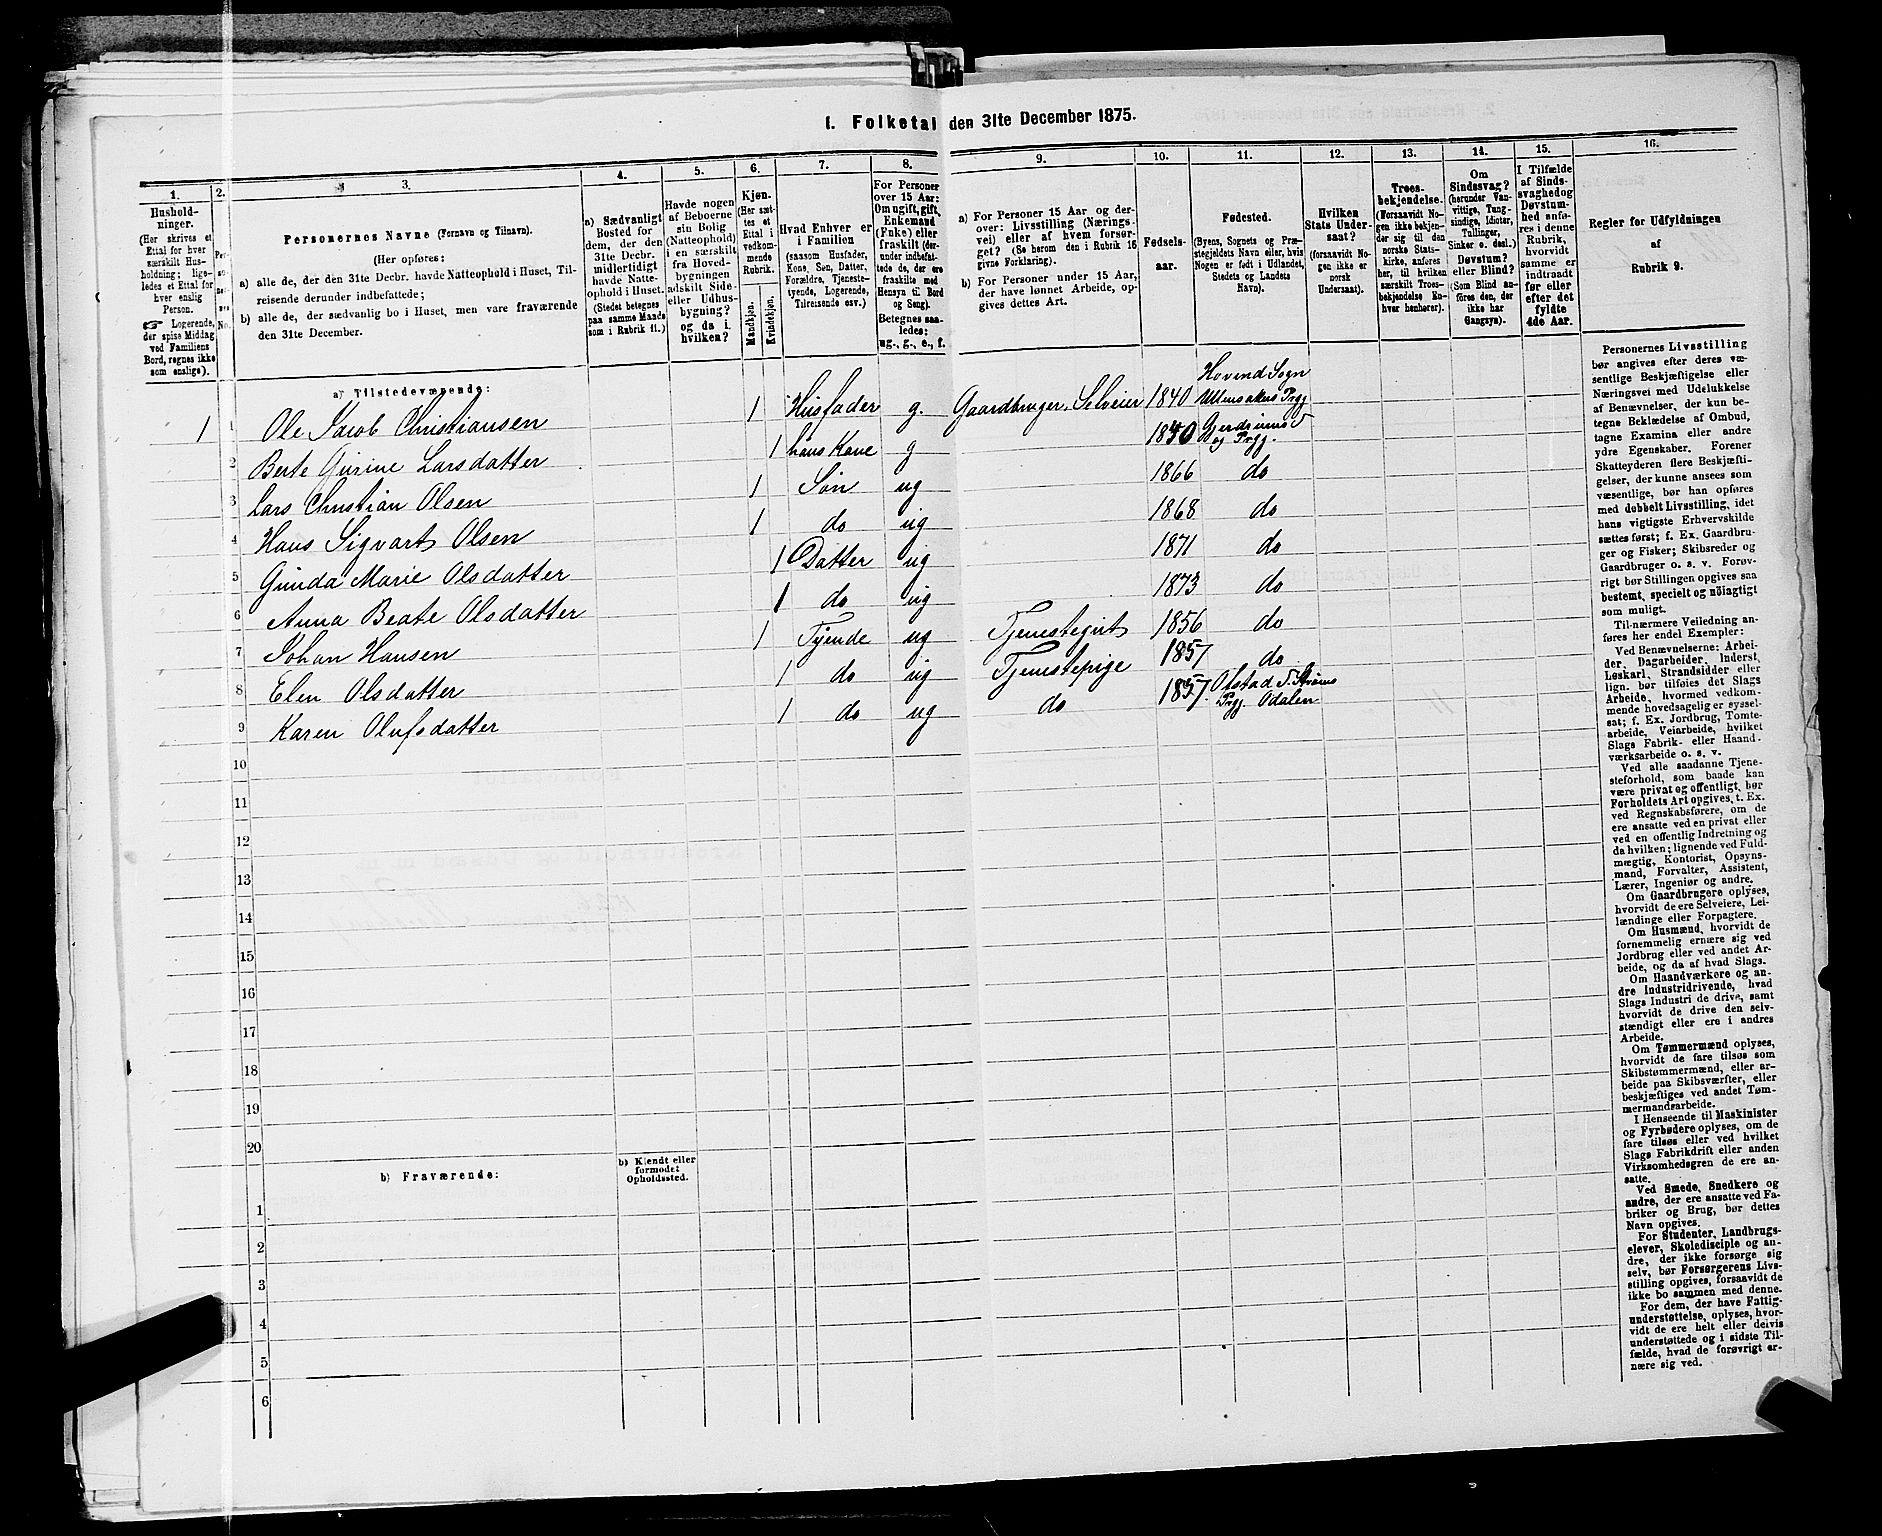 I. Folketal den 31te December 1875.
1. 2. 3. 4. 5. 6. 7. 8. 9. 10. 11. 12. 13. 14. 15. 16.
Hushold-
ninger.
(Her skrives et
Ettal for hver
særskilt Hus-
holdning; lige-
ledes et Ettal for
hver enslig
Person.
☞ Logerende,
der spise Middag
ved Familiens
Bord, regnes ikke
som enslige).
Per-
so-
ner-
nes
No.
Personernes Navne (Fornavn og Tilnavn).
(Her opføres:
a) alle de, der den 31te Decbr. havde Natteophold i Huset, Til-
reisende derunder indbefattede;
b) alle de, der sædvanlig bo i Huset, men vare fraværende
den 31te December.
a) Sædvanligt
Bosted for
dem, der den
31te Decbr.
midlertidigt
havde Natte-
ophold i Huset.
(Stedet betegnes
paa samme Maade
som i Rubrik 11.)
Havde nogen
af Beboerne
sin Bolig
(Natteophold)
i en særskilt
fra Hoved-
bygningen
adskilt Side-
eller Udhus-
bygning?
og da i
hvilken?
Kjøn.
(Her sæt-
tes et
Ettal i
vedkom-
mende
Rubrik.
Mandkjøn.
Kvindekjøn.
Hvad Enhver er
i Familien
(saasom Husfader,
Kone, Søn, Datter,
Forældre, Tjeneste-
tyende, Logerende,
Tilreisende osv.)
For Personer
over 15 Aar:
Om ugift, gift,
Enkemand
(Enke) eller
fraskilt (der-
under indbefat-
tede de, der ere
fraskilte med
Hensyn til Bord
og Seng).
Betegnes saa-
ledes:
ug., g., e., f.
a) For Personer 15 Aar og der-
over: Livsstilling (Nærings-
vei) eller af hvem forsør-
get? (Se herom den i Rubrik 16
givne Forklaring).
b) For Personer under 15 Aar,
der have lønnet Arbeide, op-
gives dettes Art.
Fødsels-
aar.
Fødested.
(Byens, Sognets og Præ-
stegjeldets Navn eller, hvis
Nogen er født i Udlandet,
Stedets og Landets
Navn).
Hvilken
Stats Under-
saat?
(forsaavidt No-
gen ikke er
norsk
Undersaat).
Troes-
bekjendelse.
(Forsaavidt No-
gen ikke bekjen-
der sig til den
norske Stats-
kirke, anføres
her, til hvilken
særskilt Troes-
bekjendelse En-
hver henhører).
Om
Sindssvag?
(herunder Van-
vittige, Tung-
sindige, Idioter,
Tullinger,
Sinker o. desl.)
Døvstum?
eller Blind?
(Som Blind an-
føres den, der
ikke har
Gangsyn).
I Tilfælde
af Sinds-
svaghed og
Døvstum-
hed anfø-
res i denne
Rubrik,
hvorvidt
samme er
indtraadt
før eller
efter det
fyldte
4de Aar.
Regler for Udfyldningen
af
Rubrik 9.
a) Tilstedeværende:
1 1 Ole Jacob Christiansen 1 Husfader g. Gaardbruger, Selveier 1840 Hovend Sogn Ullensakers Prgj
2 Berte Gurine Larsdatter 1 hans Kone g 1840 Gjerdrums S og Prgj.
3 Lars Christian Olsen 1 Søn ug 1866 do
4 Hans Sigvart Olsen 1 do ug 1868 do
5 Gunda Marie Olsdatter 1 Datter ug 1871 do
6 Anna Beate Olsdatter 1 do ug 1873 do
7 Johan Hansen 1 Tyende ug Tjenestegut 1856 do
8 Elen Olsdatter 1 do ug Tjenestepige 1857 do
9 Karen Olufsdatter 1 do ug do 1857 Prgj. Odalen
10
11
12
13
14
15
16
17
18
19
20
b) Fraværende:
b) Kjendt eller
formodet
Opholdssted.
1
2
3
4
5
6
Personernes Livsstilling
bør angives efter deres væ-
sentlige Beskjæftigelse eller
Næringsvei med Udelukkelse
af Benævnelser, der kun be-
tegne Beklædelse af Ombud,
tagne Examina eller andre
ydre Egenskaber. Forener
Skatteyderen flere Beskjæfti-
gelser, der kunne ansees som
væsentlige, bør han opføres
med dobbelt Livsstilling, idet
hans vigtigste Erhvervskilde
sættes først; f. Ex. Gaardbru-
ger og Fisker; Skibsreder og
Gaardbruger o. s. v. Forøv-
rigt bør Stillingen opgives saa
bestemt, specielt og nøiagtigt
som muligt.
Til nærmere Veiledning an-
føres her endel Exempler:
Ved Benævnelserne: Arbei-
der, Dagarbeider, Inderst,
Løskarl, Strandsidder eller
lign. bør tilføies det Slags
Arbeide, hvormed vedkom-
mende hovedsagelig er syssel-
sat; f. Ex. Jordbrug, Tomte-
arbeide, Veiarbeide, hvilket
Slags Fabrik- eller Haand-
værksarbeide o. s. v.
Ved alle saadanne Tjene-
steforhold, som baade kan
være privat og offentligt, bør
Forholdets Art opgives, t. Ex.
ved Regnskabsførere, om de
ere ansatte ved en privat eller
ved en offentlig Indretning og
da hvilken; lignende ved Fuld-
mægtig, Kontorist, Opsyns-
mand, Forvalter, Assistent,
Lærer, Ingeniør og andre.
Om Gaardbrugere oplyses,
hvorvidt de ere Selveiere, Lei-
lændinge eller Forpagtere.
Om Husmænd, hvorvidt de
fornemmelig ernære sig ved
Jordbrug eller ved andet Ar-
beide, og da af hvad Slags.
Om Haandværkere og an-
dre Industridrivende, hvad
Slags Industri de drive, samt
hvorvidt de drive den selv-
stændigt eller ere i andres
Arbeide.
Om Tømmermænd oplyses,
hvorvidt de fare tilsøs som
Skibstømmermænd, eller ar-
beide paa Skibsværfter, eller
beskjæftiges ved andet Tøm-
mermandsarbeide.
I Henseende til Maskinister
og Fyrbødere oplyses, om de
fare tilsøs eller ved hvilket
Slags Fabrikdrift eller anden
Virksomhedsgren de ere an-
satte.
Ved Smede, Snedkere og
andre, der ere ansatte ved Fa-
briker og Brug, bør dettes
Navn opgives.
For Studenter, Landbrugs-
elever, Skoledisciple og an-
dre, der ikke forsørge sig
selv, bør Forsørgerens Livs-
stilling opgives, forsaavidt de
ikke bo sammen med denne.
For dem, der have Fattig-
understøttelse, oplyses, hvor-
vidt de ere helt eller delvis
understøttede og i sidste Til-
fælde, hvad de forøvrigt er-
nære sig ved.